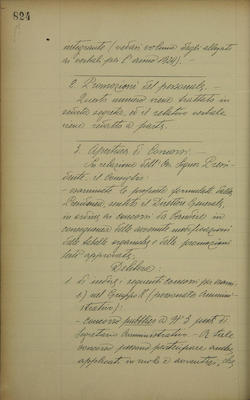 824
integrante (vedasi volume degli allegati
ai verbali per l'anno 1934). -
2. Promozioni del personale. -
Questo numero viene trattato in
seduta segreta, ed il relativo verbale
viene redatto a parte.
3. Apertura di Concorsi. -
Su relazione dell'On. Signor Presi-
dente, il Consiglio:
- esaminate le proposte formulate dalla
Presidenza, sentito il Direttore Generale,
in ordine ai concorsi da bandire in
conseguenza delle avvenute modificazioni
delle tabelle organiche e delle promozioni
approvate;
Delibera:
1. di indire i seguenti concorsi per esami:
a) nel Gruppo A (personale Ammini-
strativo):
- concorso pubblico a N° 3 posti di
Segretario Amministrativo. - A tale
concorso possono partecipare anche
applicati in ruolo o avventizi, che